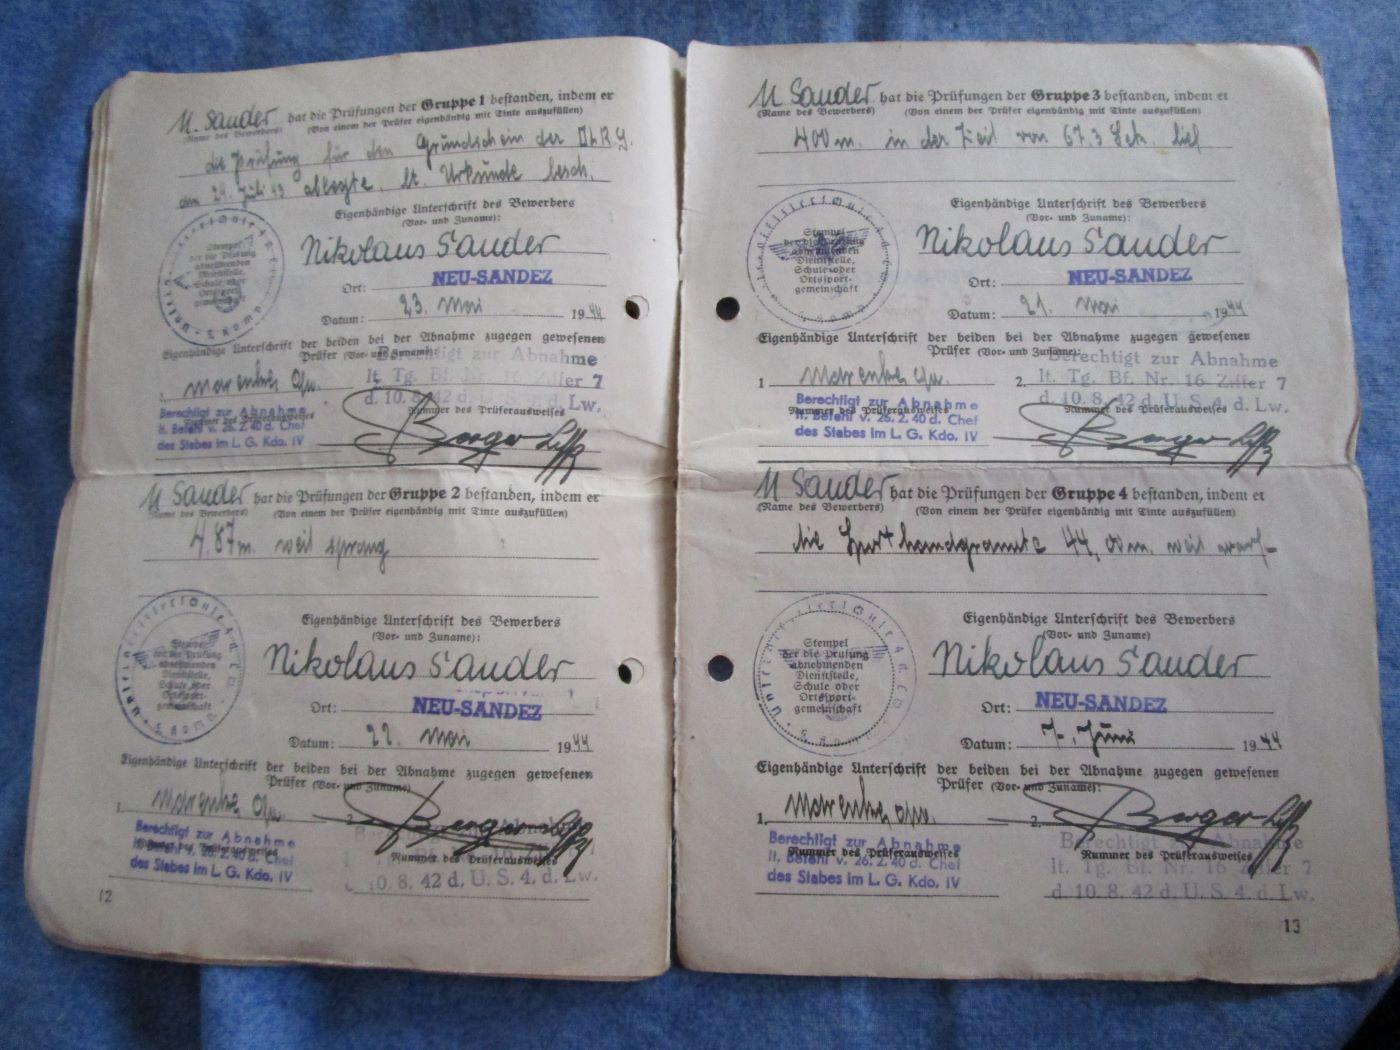 U. Sander hat die Prüfungen der Gruppe 1 bestanden, indem er
(Name des Bewerbers) (Von einem der Prüfer eigenhändig mit Tinte auszufüllen)
die Prüfung für den Grundschein der DLRG.
am 24. Juli 43 ablegte. lt. Urkunde besch.
Eigenhändige Unterschrift des Bewerbers
(Vor- und Zuname):
Nikolaus Sander
Stempel
der die Prüfung
abnehmenden
Dienststelle,
Schule oder
Ortssport-
gemeinschaft
Ort: NEU-SANDEZ
Datum: 23. Mai 1944
Eigenhändige Unterschrift der beiden bei der Abnahme zugegen gewesenen
Prüfer (Vor- und Zuname):
Berechtigt zur Abnahme
lt. Tg. Bf. Nr. 16 Ziffer 7
d. 10. 8. 42 d. U. S. 4. d. Lw.
Berechtigt zur Abnahme
lt. Befehl v. 26. 2. 40 d. Chef
des Stabes im L. G. Kdo. IV
Nummer des Prüferausweises
Berger
U Sander hat die Prüfungen der Gruppe 2 bestanden, indem er
(Name des Bewerbers) (Von einem der Prüfer eigenhändig mit Tinte auszufüllen)
4.87m. weit sprang
Eigenhändige Unterschrift des Bewerbers
(Vor- und Zuname):
Nikolaus Sander
Stempel
der die Prüfung
abnehmenden
Dienststelle,
Schule oder
Ortssport-
gemeinschaft
Ort: NEU-SANDEZ
Datum: 22. Mai 1944
Eigenhändige Unterschrift der beiden bei der Abnahme zugegen gewesenen
Prüfer (Vor- und Zuname)
1. 2. Berger
Berechtigt zur Abnahme
lt. Befehl v. 26. 2. 40 d. Chef
des Stabes im L. G. Kdo. IV
Nummer des Prüferausweises
10. 8. 42 d. U. S. 4. d. Lw.
12
U Sander hat die Prüfungen der Gruppe 3 bestanden, indem er
(Name des Bewerbers) (Von einem der Prüfer eigenhändig mit Tinte auszufüllen)
400m. in der Zeit von 67.3 Sek. lief
Eigenhändige Unterschrift des Bewerbers
(Vor- und Zuname):
Nikolaus Sander
Stempel
der die Prüfung
abnehmenden
Dienststelle,
Schule oder
Ortssport-
gemeinschaft
Ort: NEU-SANDEZ
Datum: 21. Mai 1944
Eigenhändige Unterschrift der beiden bei der Abnahme zugegen gewesenen
Prüfer (Vor- und Zuname):
Berechtigt zur Abnahme
1 2. lt. Tg. Bf. Nr. 16 Ziffer 7
d. 10. 8. 42 d. U. S. 4. d. Lw.
Berechtigt zur Abnahme
Nummer des Prüferausweises
lt. Befehl v. 26. 2. 40 d. Chef
des Stabes im L. G. Kdo. IV
Nummer des Prüferausweises
Berger
U Sander hat die Prüfungen der Gruppe 4 bestanden, indem er
(Name des Bewerbers) (Von einem der Prüfer eigenhändig mit Tinte auszufüllen)
die Handgranate 44,00m. weit warf
Eigenhändige Unterschrift des Bewerbers
(Vor- und Zuname)
Nikolaus Sander
Stempel
der die Prüfung
abnehmenden
Dienststelle,
Schule oder
Ortssport-
gemeinschaft
Ort: NEU-SANDEZ
Datum: 7. Juni 1944
Eigenhändige Unterschrift der beiden bei der Abnahme zugegen gewesenen
Prüfer (Vor- und Zuname):
1. 2. Berger
Berechtigt zur Abnahme
Nummer des Prüferausweises
lt. Befehl v. 26. 2. 40 d. Chef
des Stabes im L. G. Kdo. IV
Berechtigt zur Abnahme
Nummer des Prüferausweises
lt. Tg. Bf. Nr. 16 Ziffer 7
d. 10. 8. 42 d. U. S. 4. d. Lw.
13